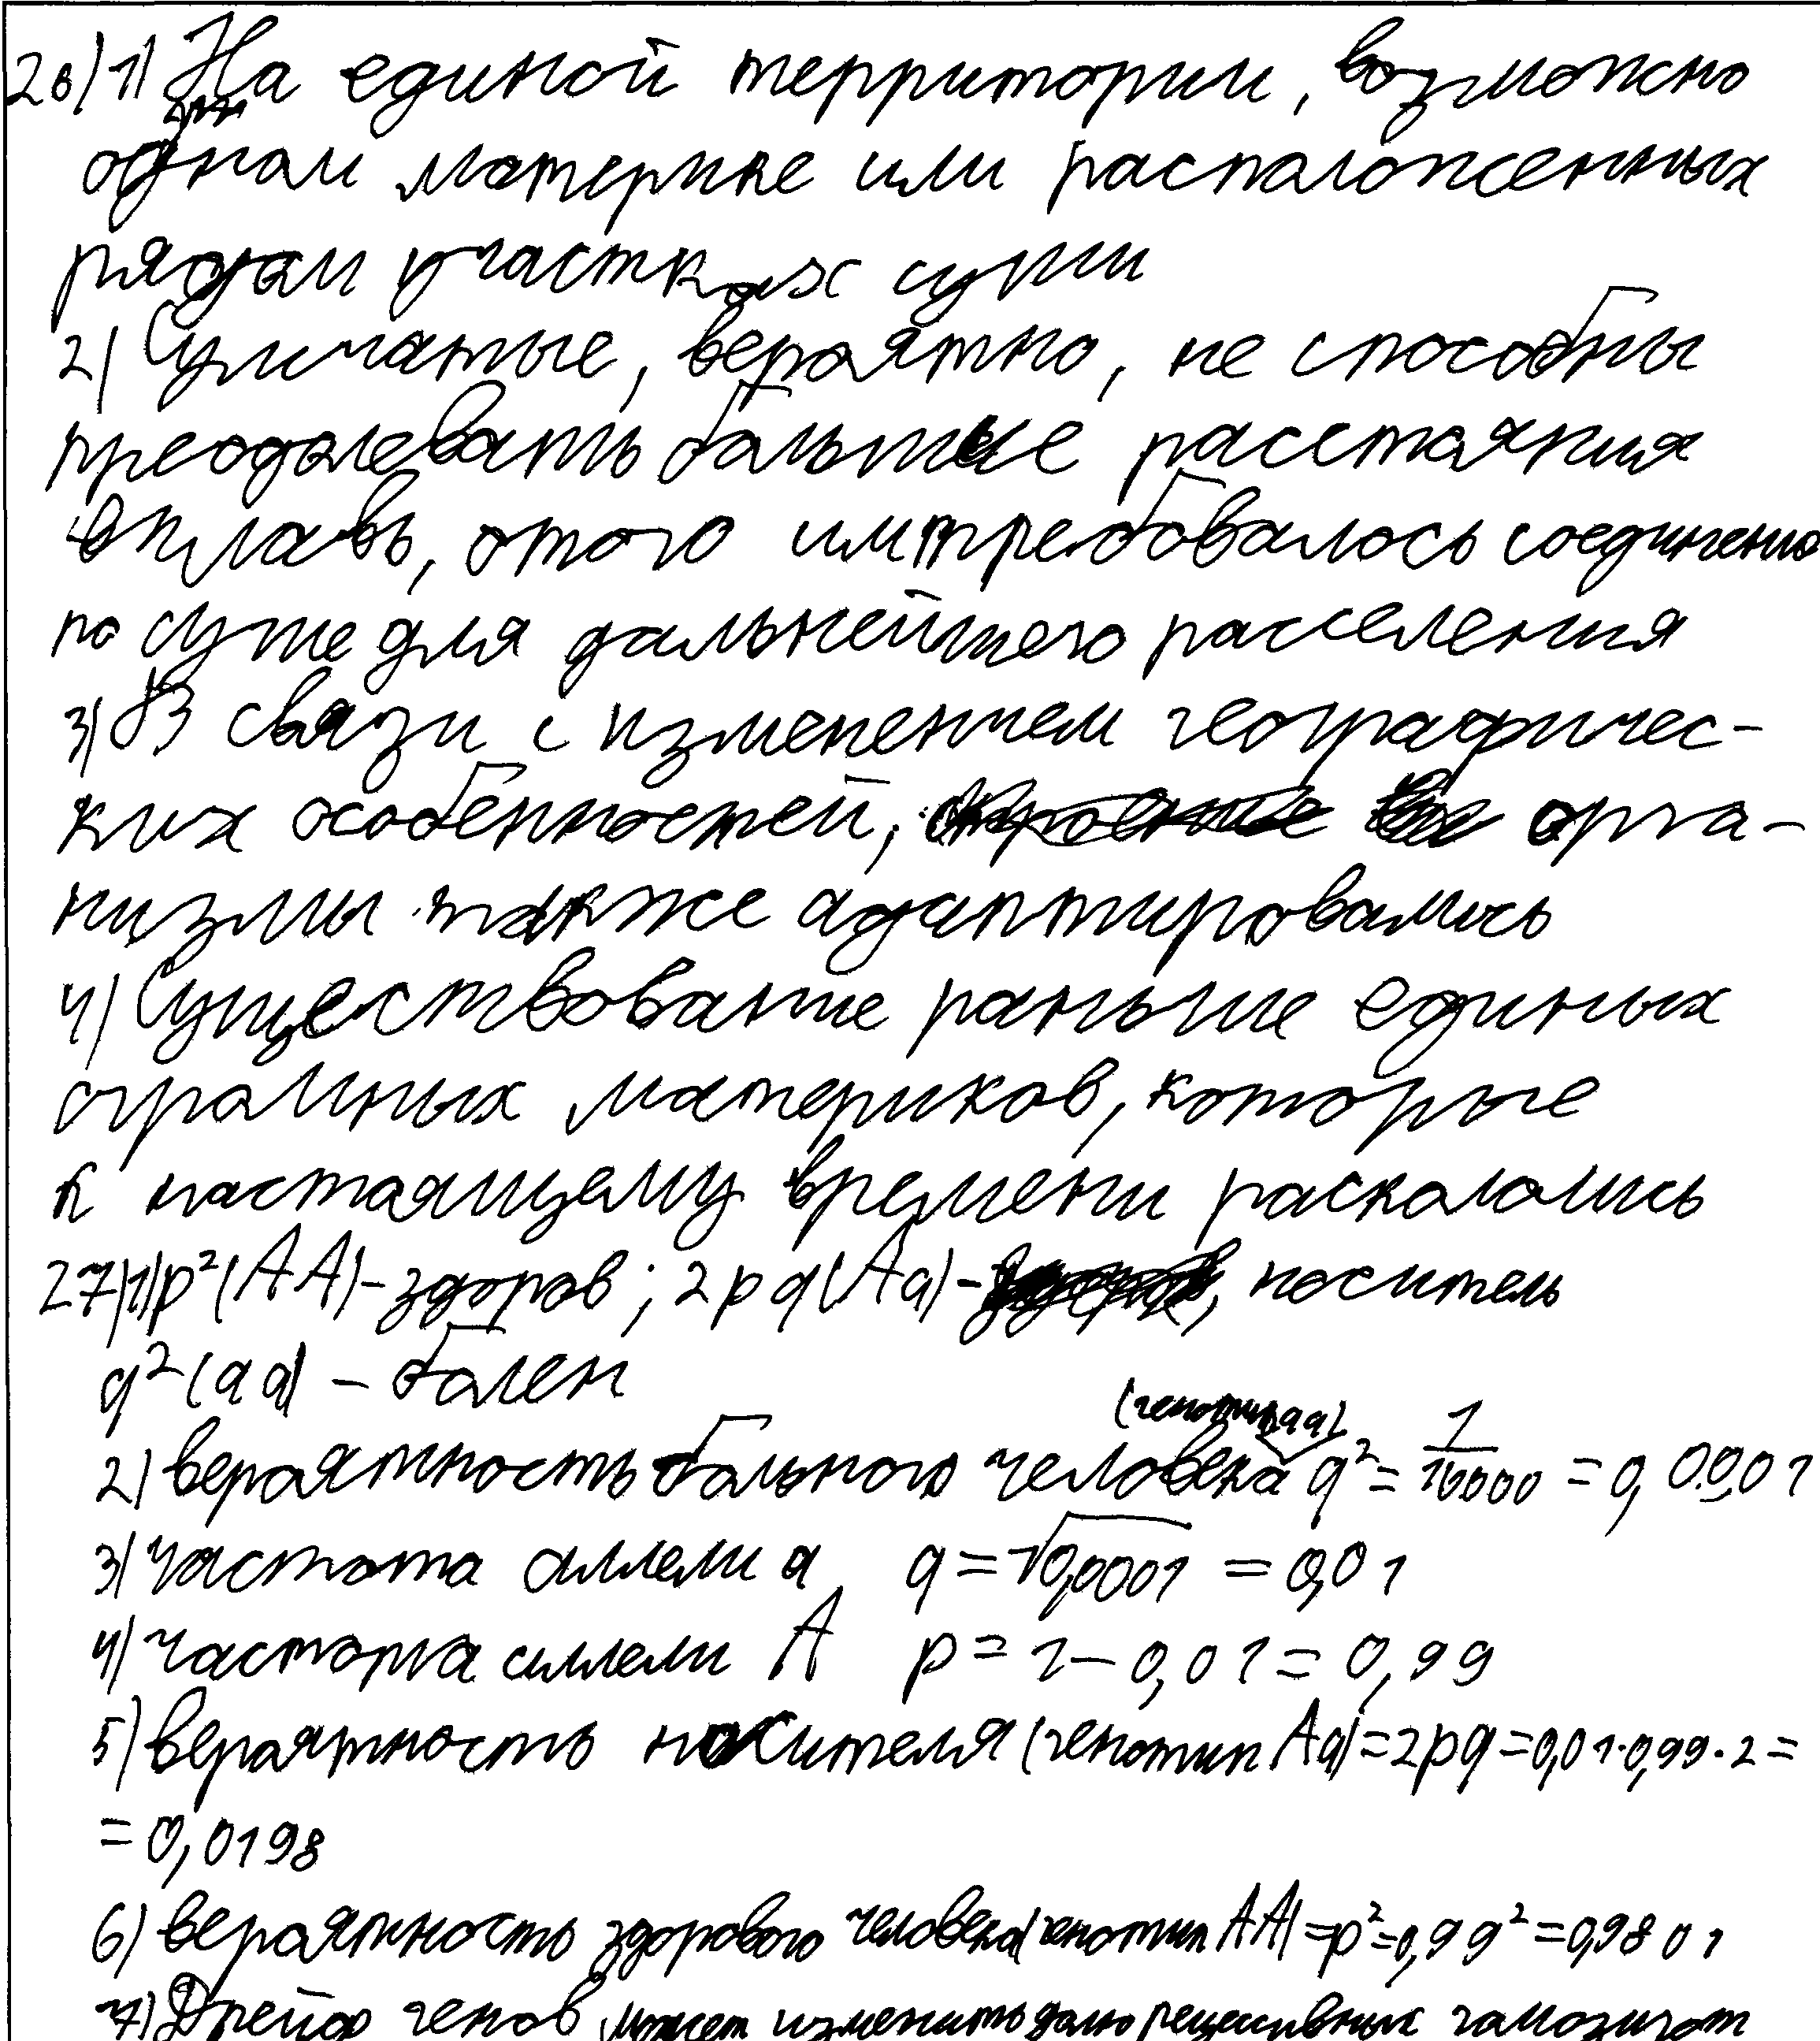 26) 1) На единой территории, возможно
одном материке или расположенных
рядом участках суши
2) Сумчатые, вероятно, не способны
преодолевать большие расстояния
вплавь, этого им требовалось соединение
по суше для дальнейшего расселения
3) В связи с изменением географичес-
ких особенностей, орга-
низмы также адаптировались
4) Существование раньше единых
огромных материков, которые
к настоящему времени раскололись
27) 1) p²(AA) - здоров; 2pq(Aa) - , носитель
q²(aa) - болен
2) вероятность больного человека (генотип aa) q² = 1/10000 = 0,0001
3) Частота аллели a q = √0,0001 = 0,01
4) частота аллели A p = 1 - 0,01 = 0,99
5) вероятность носителя (генотип Aa) = 2pq = 0,01·0,99·2 =
= 0,0198
6) вероятность здорового человека (генотип AA) = p² = 0,99² = 0,9801
7) Дрейф генов может изменить долю рецессивных гомозигот